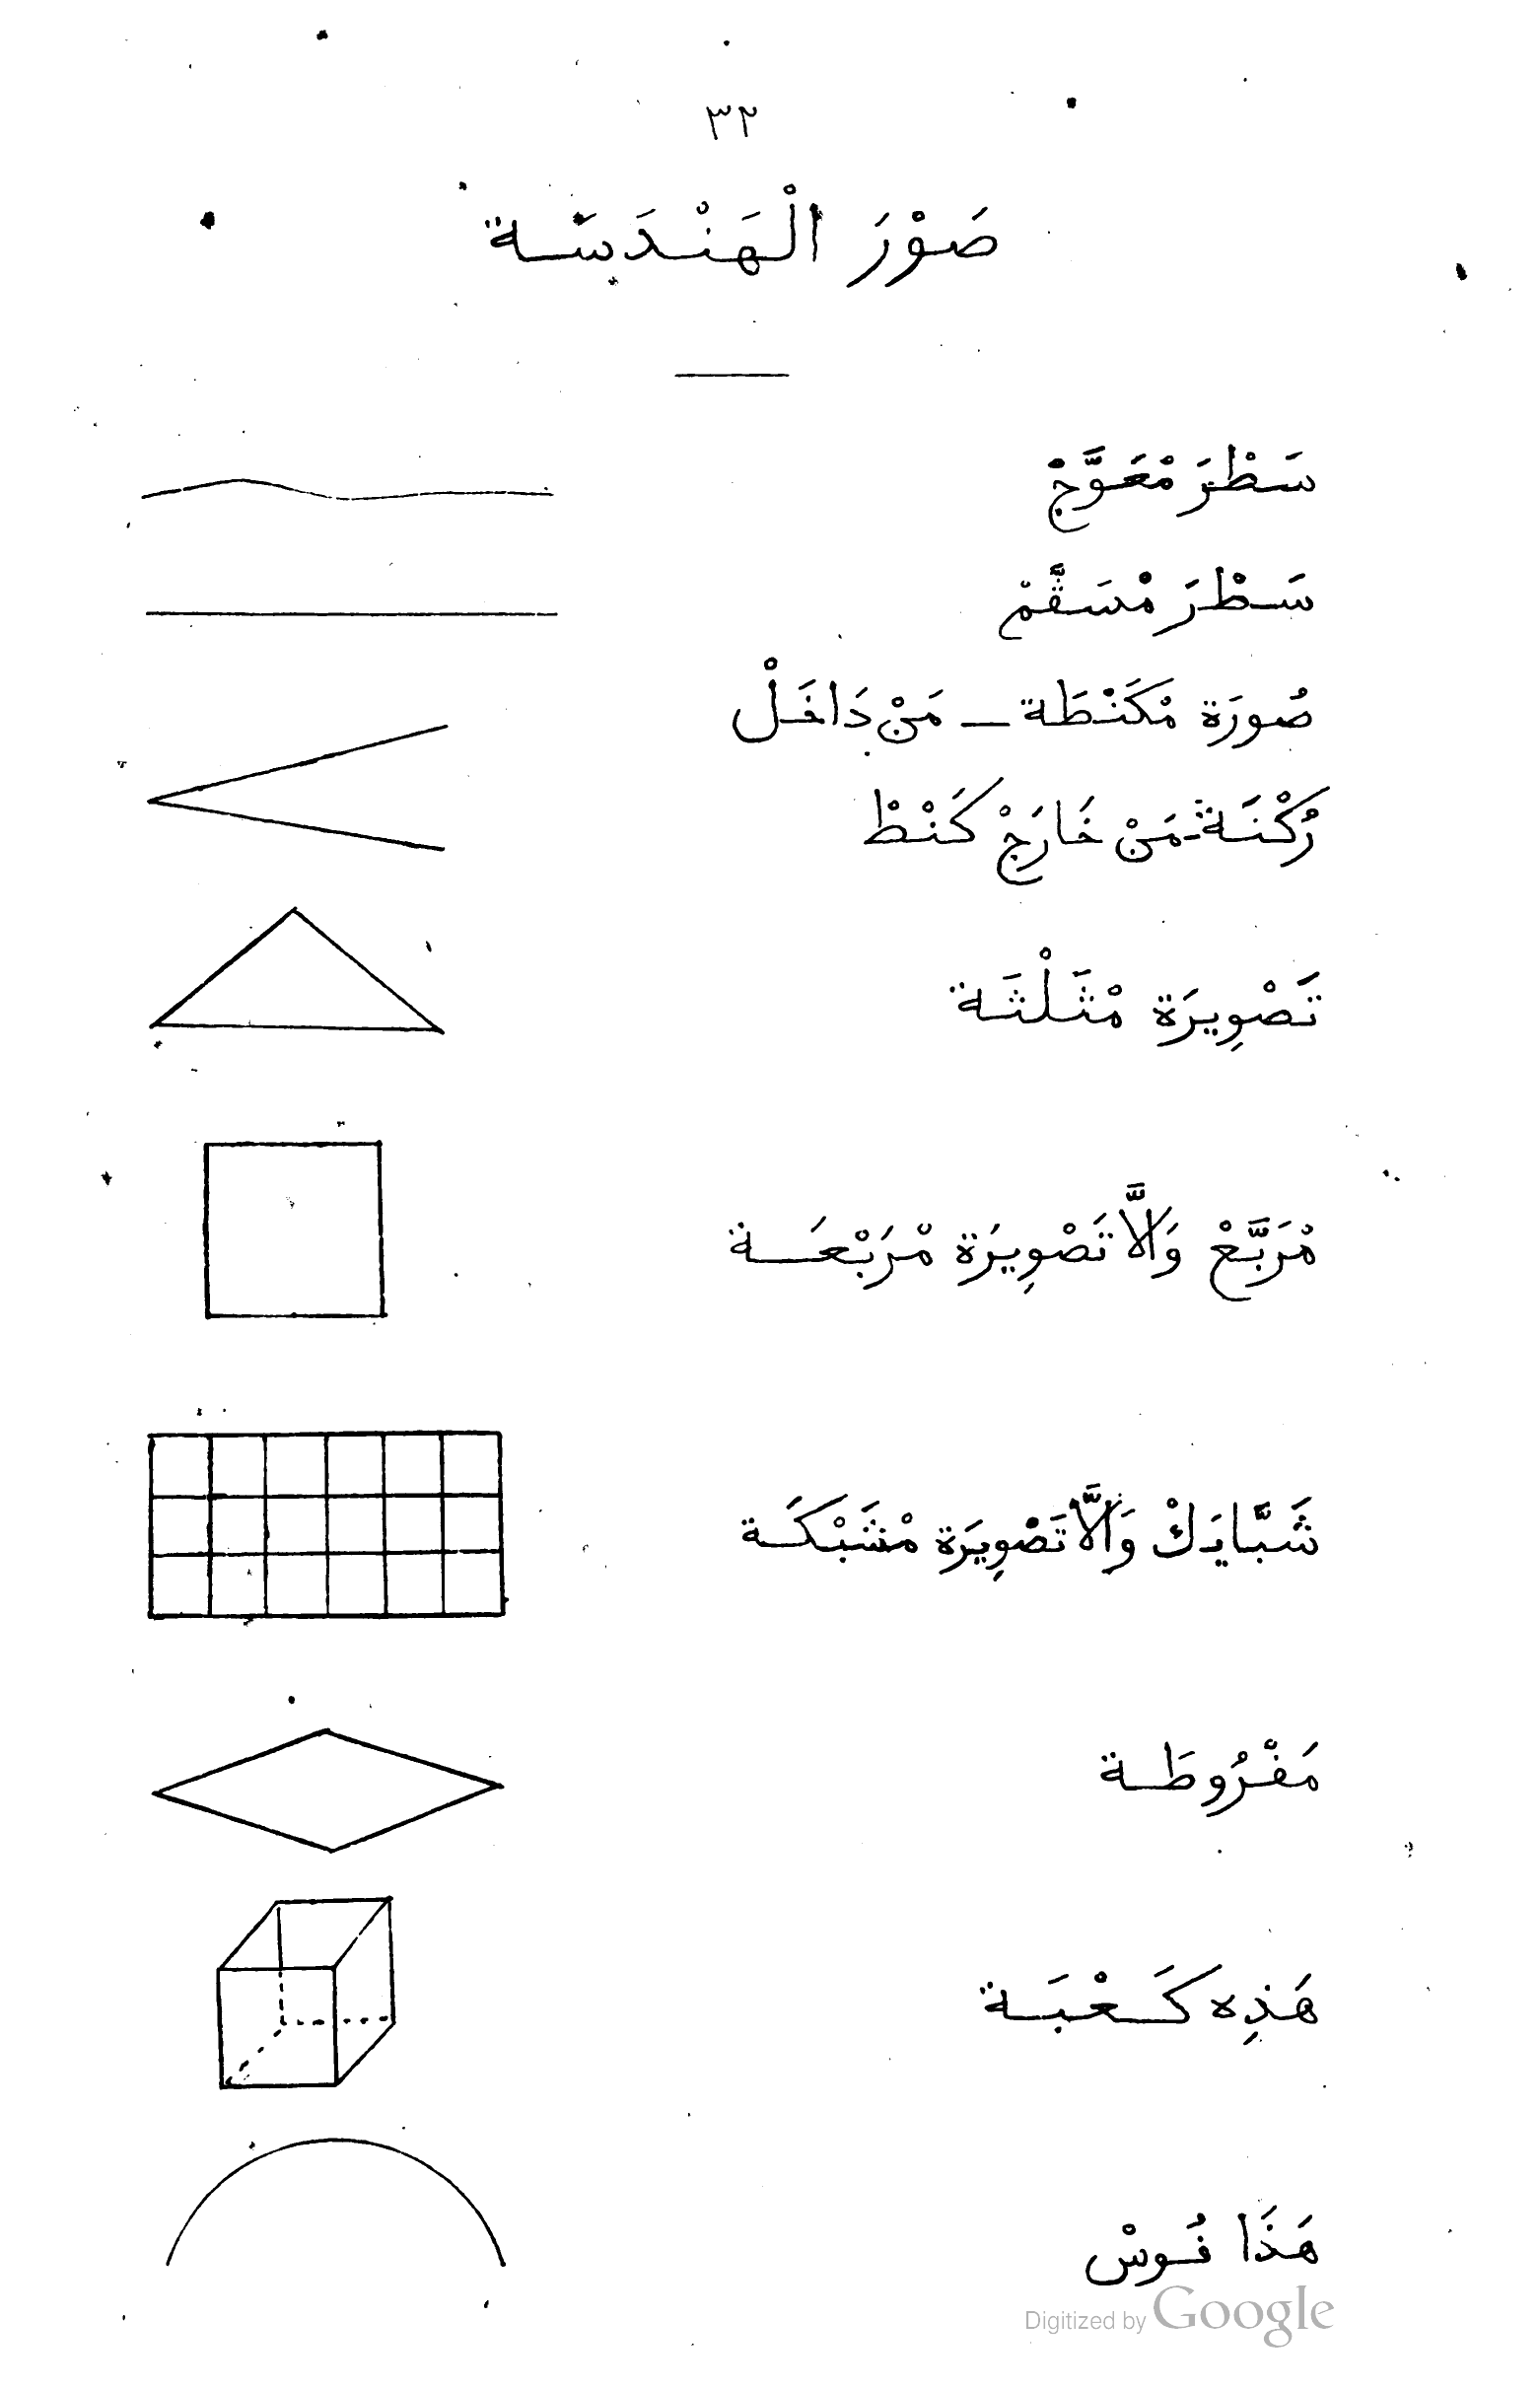 ٣٢
صَوْرَ الْهَنْدَسَة
سَطْرَ مْعَوَّجْ
سَطْرَ مْسَقَّمْ
صُورَة مْكَنْطَة ــ مَنْ دَاخَلْ
رُكْنَة ـ مَنْ خَارَجْ كَنْطْ
تَصْوِيرَة مْثَلْثَة
مْرَبَّعْ وَالَّا تَصْوِيرَة مْرَبْعَة
شَبَّايَكْ وَالَّا تَصْوِيرَة مْشَبْكَة
مَفْرُوطَة
هَذِه كَعْبَة
هَذَا قُوسْ
Digitized by Google